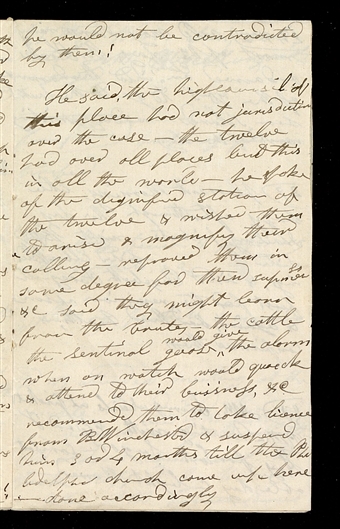 he would not be contradicted
by them!
He said, the high council of
this place had not jurisdiction
over the case – the twelve
had over all places but this
in all the world – he spoke
of the dignified station of
the twelve & wished them
to arise & magnify their
calling – reproved them in
some degree for their
&c said they might learn
from the brutes – the cattle
the sentinal goose, would give the alarm
when on watch would quack
& attend to their buisness, &c
recommended them to take licence
from B Winchester & suspend
him 3 or 4 months till the Phi
ladelpa church come up here
– done accordingly